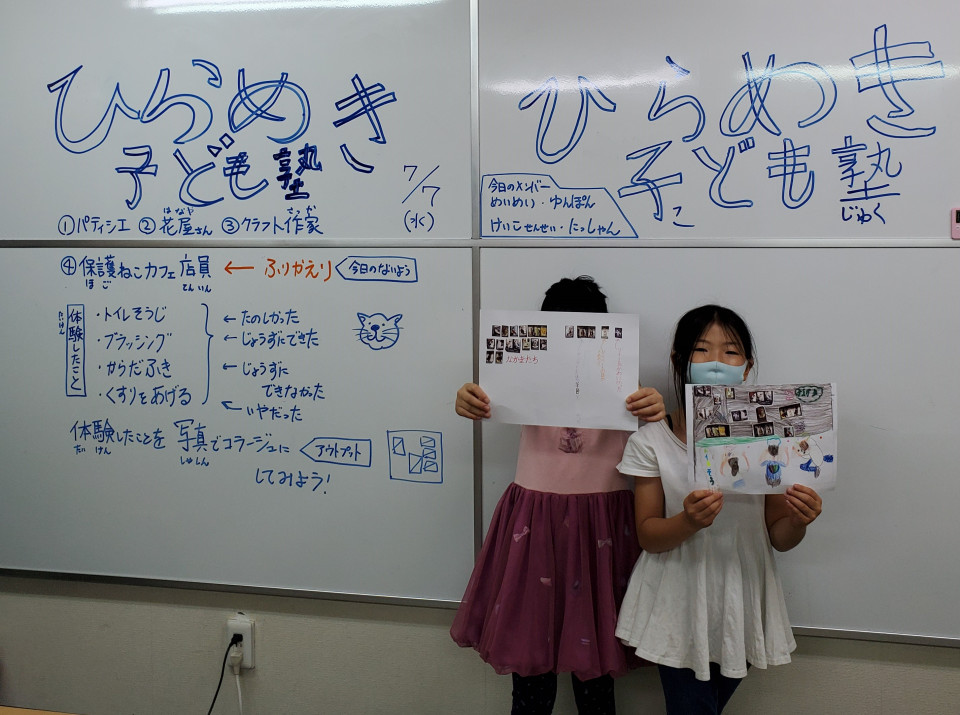 ひらめき
子ども塾
7/7
(水)
はなや さっか
①パティシエ ②花屋さん ③クラフト作家
④保護ねこカフェ店員 ← ふりかえり 今日のないよう
ほご てんいん
体験したこと
たいけん
・トイレそうじ
・ブラッシング
・からだふき
・くすりをあげる
← たのしかった
← じょうずにできた
← じょうずに
できなかった
← いやだった
体験したことを 写真でコラージュに アウトプット
たいけん しゅしん
してみよう!
ひらめき
子ども塾
こ じゅく
今日のメンバー
めいめい・ゆんぽん
けいこせんせい・にっしゃん
なかまたち